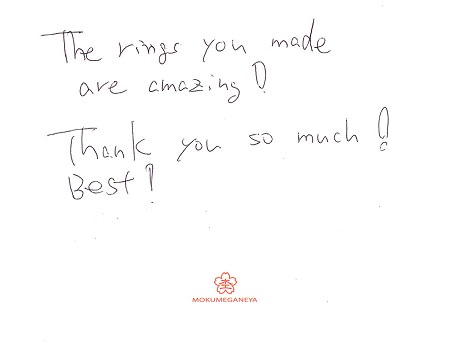 The rings you made
are amazing!
Thank you so much!
Best!
MOKUMEGANEYA